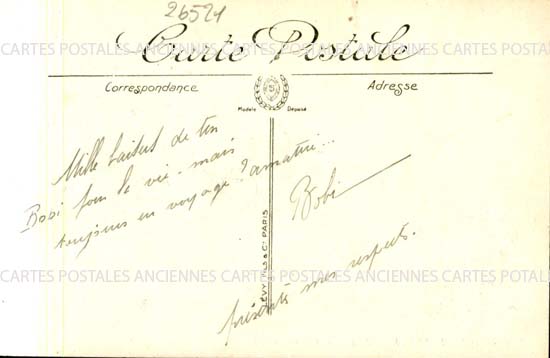 26521
Carte Postale
CARTES POSTALES ANCIENNES CARTES POSTALES ANCIENNES CARTES POSTALES ANCIENNES
Correspondance
Adresse
Modèle Déposé
Mille baisers de ton
Bobi pour la vie - mais
toujours en voyage ?
Bobi
présente mes respects.
LÉVY FILS & Cie PARIS
CARTES POSTALES ANCIENNES CARTES POSTALES ANCIENNES CARTES POSTALES ANCIENNES